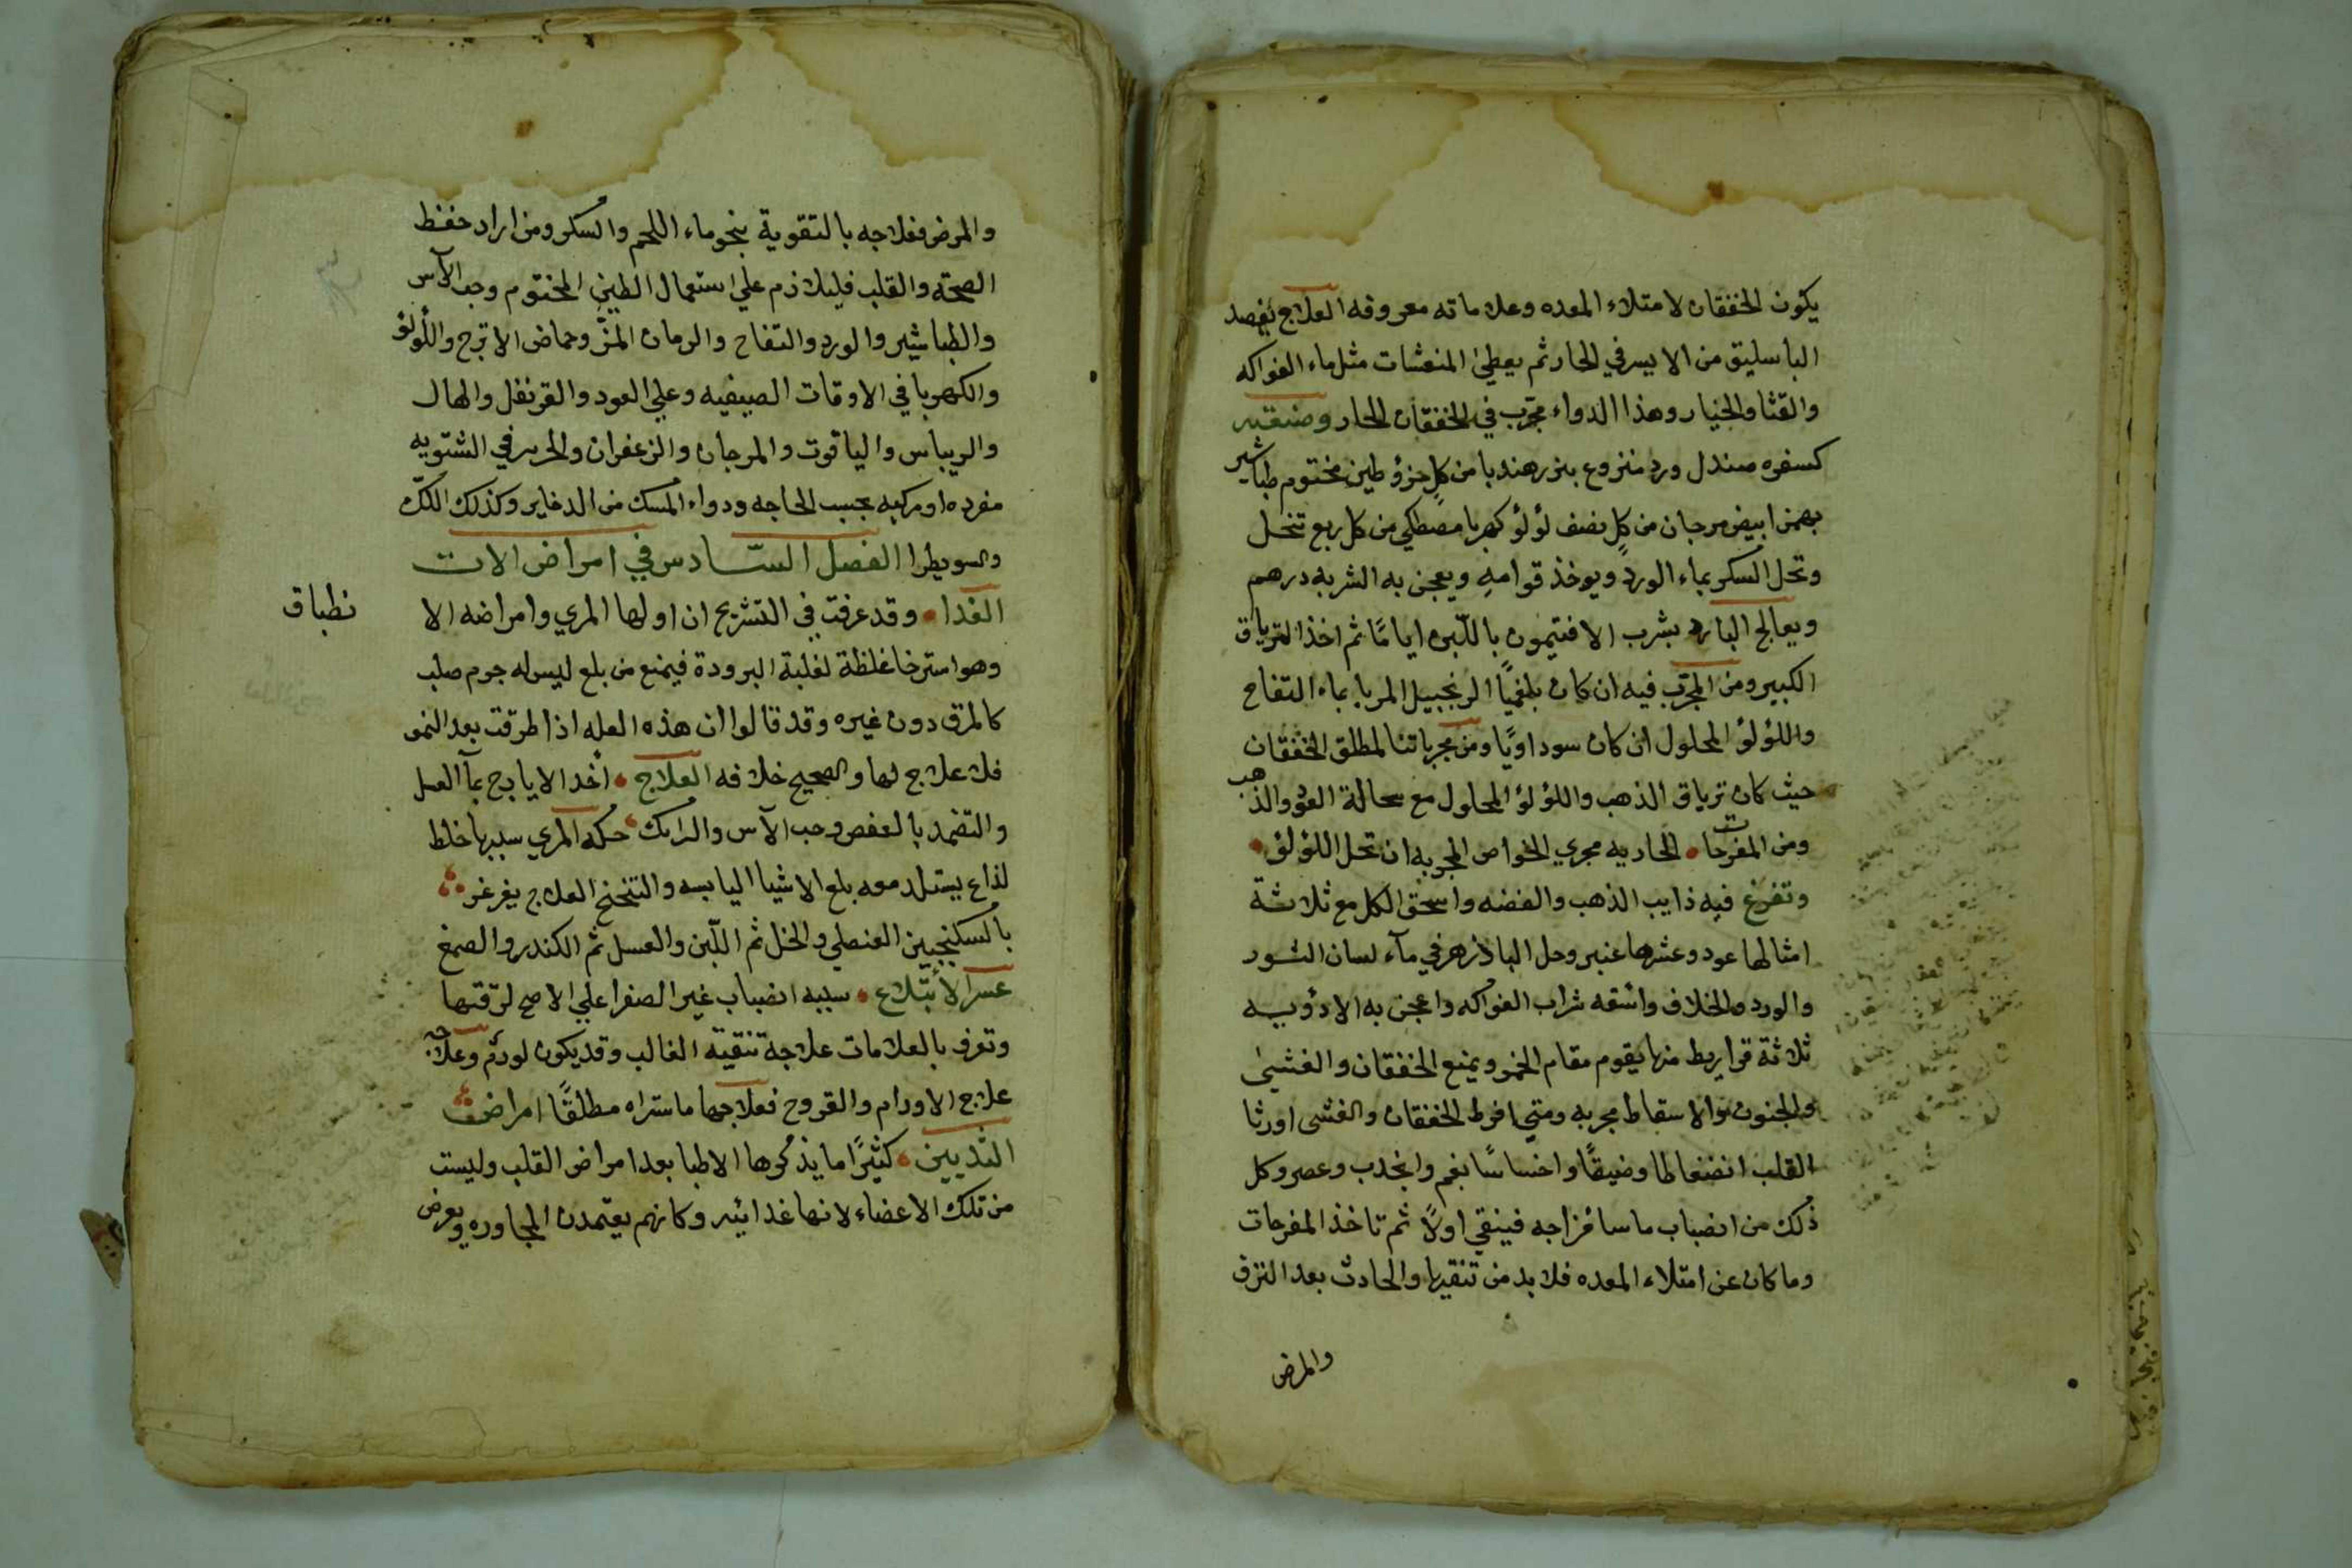 يكون الخفقان لامتلاء المعده وعلاماته معروفه العلاج يفصد
الباسليق من الايسر في الحار ثم يعطي المنعشات مثل ماء الفواكه
والقثا والخيار وهذا الدواء مجرب في الخفقان الحار وصنعته
كسفره صندل ورد منزوع بزر هندبا من كل جزؤ طين مختوم طباشير
بهمن ابيض مرجان من كل نصف لؤلؤ كهربا مصطكي من كل ربع تنخل
وتحل السكر بماء الورد ويوخذ قوامه ويعجن به الشربه درهم
ويعالج البارد بشرب الافتيمون باللبن اياما ثم اخذ الترياق
الكبير ومن المجرب فيه ان كان بلغمياً الزنجبيل المربا بماء التفاح
واللؤلؤ المحلول ان كان سوداويًا ومن مجرباتنا لمطلق الخفقان
حيث كان ترياق الذهب واللؤلؤ المحلول مع سحالة العود والذهب
ومن المفرحات الحاديه مجري الخواص المجربه ان تحل اللؤلؤ
وتفرغ فيه ذايب الذهب والفضه واسحق الكل مع ثلاثة
امثالها عود وعشرها عنبر وحل الباذزهر في مآء لسان الثور
والورد والخلاف واسقه شراب الفواكه واعجن به الادؤيه
ثلاثة قراريط منها يقوم مقام الخمر ويمنع الخفقان والغشي
والجنون والاسقاط مجربه ومتي افرط الخفقان والغشى اورثا
القلب انضغاطا وضيقًا واحساسًا بغم وانجذب وعصر وكل
ذلك من انصباب ما سا مزاجه فينقي اولاً ثم تاخذ المفرحات
وما كان عن امتلاء المعده فلا بد من تنقيها والحادث بعد النزف
والمرض
والمرض فعلاجه بالتقوية بنحو ماء اللحم والسكر ومن اراد حفظ
الصحة والقلب فليلازم علي استعمال الطين المختوم وحب الآس
والطباشير والورد والتفاح والرمان المز وحماض الاترج واللؤلؤ
والكهربا في الاوقات الصيفيه وعلي العود والقرنفل والهال
والريباس والياقوت والمرجان والزعفران والحرير في الشتويه
مفرده او مركبه بحسب الحاجه ودواء المسك من الدخاير وكذلك اللك
والسويطرا الفصل السادس في امراض الات
الغدا وقد عرفت في التشريح ان اولها المري وامراضه الا
نطباق
وهو استرخا غلظة لغلبة البرودة فيمنع من بلع ليس له جرم صلب
كالمرق دون غيره وقد قالوا ان هذه العله اذا طرقت بعد النمو
فلا علاج لها والصحيح خلافه العلاج أخد الايارج بمآ العسل
والتضمد بالعفص وحب الآس والرامك حكه المري سببها خلط
لذاع يستلد معه بلع الاشيا اليابسه والتنحنح العلاج يغرغر
بالسكنجبين العنصلي والخل ثم اللبن والعسل ثم الكندر والصمغ
عسر الابتلاع سببه انصباب غير الصفرا علي الاصح لرقتها
وتعرف بالعلامات علاجة تنقية الغالب وقد يكون لورم وعلاجه
علاج الاورام والقروح فعلاجها ما ستراه مطلقًا امراض
الثديين كثيرًا ما يذكرها الاطبا بعد امراض القلب وليست
من تلك الاعضاء لانها غدائيه وكانهم يعتمدن المجاوره ويعرض